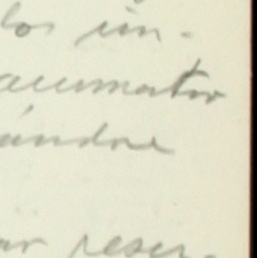 los im-
acumator
ándose
ar reser-